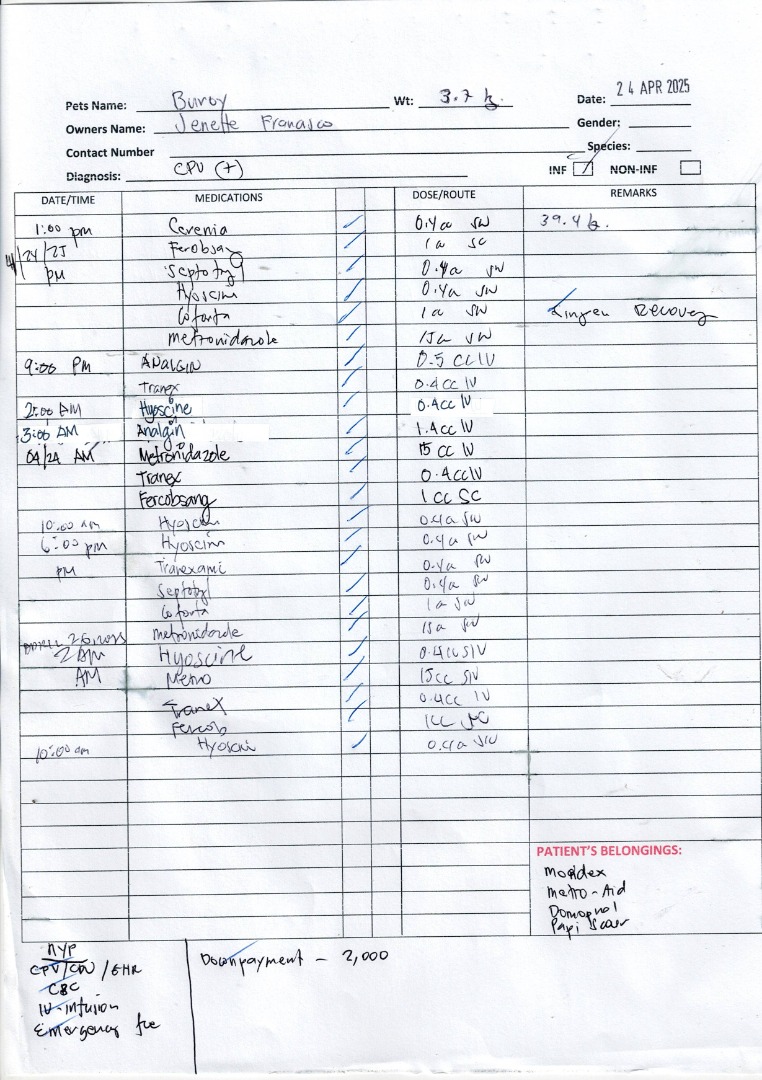 24 APR 2025
Pets Name: Buroy Wt: 3.7 k Date:
Owners Name: Jenette Francisco Gender:
Contact Number Species:
Diagnosis: CPV (+) INF NON-INF
DATE/TIME MEDICATIONS DOSE/ROUTE REMARKS
1:00 pm Cerenia 0.4cc 39.4
4/24/25 Ferobsang 1cc SC
pm Septotryl 0.4cc
Hyoscine 0.4cc
Coforta 1cc Recovery
Metronidazole 15cc
9:00 PM ANALGIN 0.5 CC IV
Tranex 0.4 CC IV
2:00 AM Hyoscine 0.4cc IV
3:00 AM Analgin 1.4 CC IV
04/24 AM Metronidazole 15 CC IV
Tranex 0.4 CC IV
Fercobsang 1 CC SC
10:00 am Hyoscin 0.4cc
6:00 pm Hyoscin 0.4cc
pm Tranexami 0.4cc
Septotryl 0.4cc
Coforta 1cc
Metronidazole 15cc
2 AM Hyoscine 0.4cc SIV
AM Metro 15cc SIV
Tranex 0.4cc IV
Fercob 1cc SC
10:00 am Hyosci 0.4cc SIV
PATIENT'S BELONGINGS:
Metro-Aid
Papi Scour
CPV/CDV / EHR
CBC
IV-infusion
Emergency fee
Downpayment - 2,000